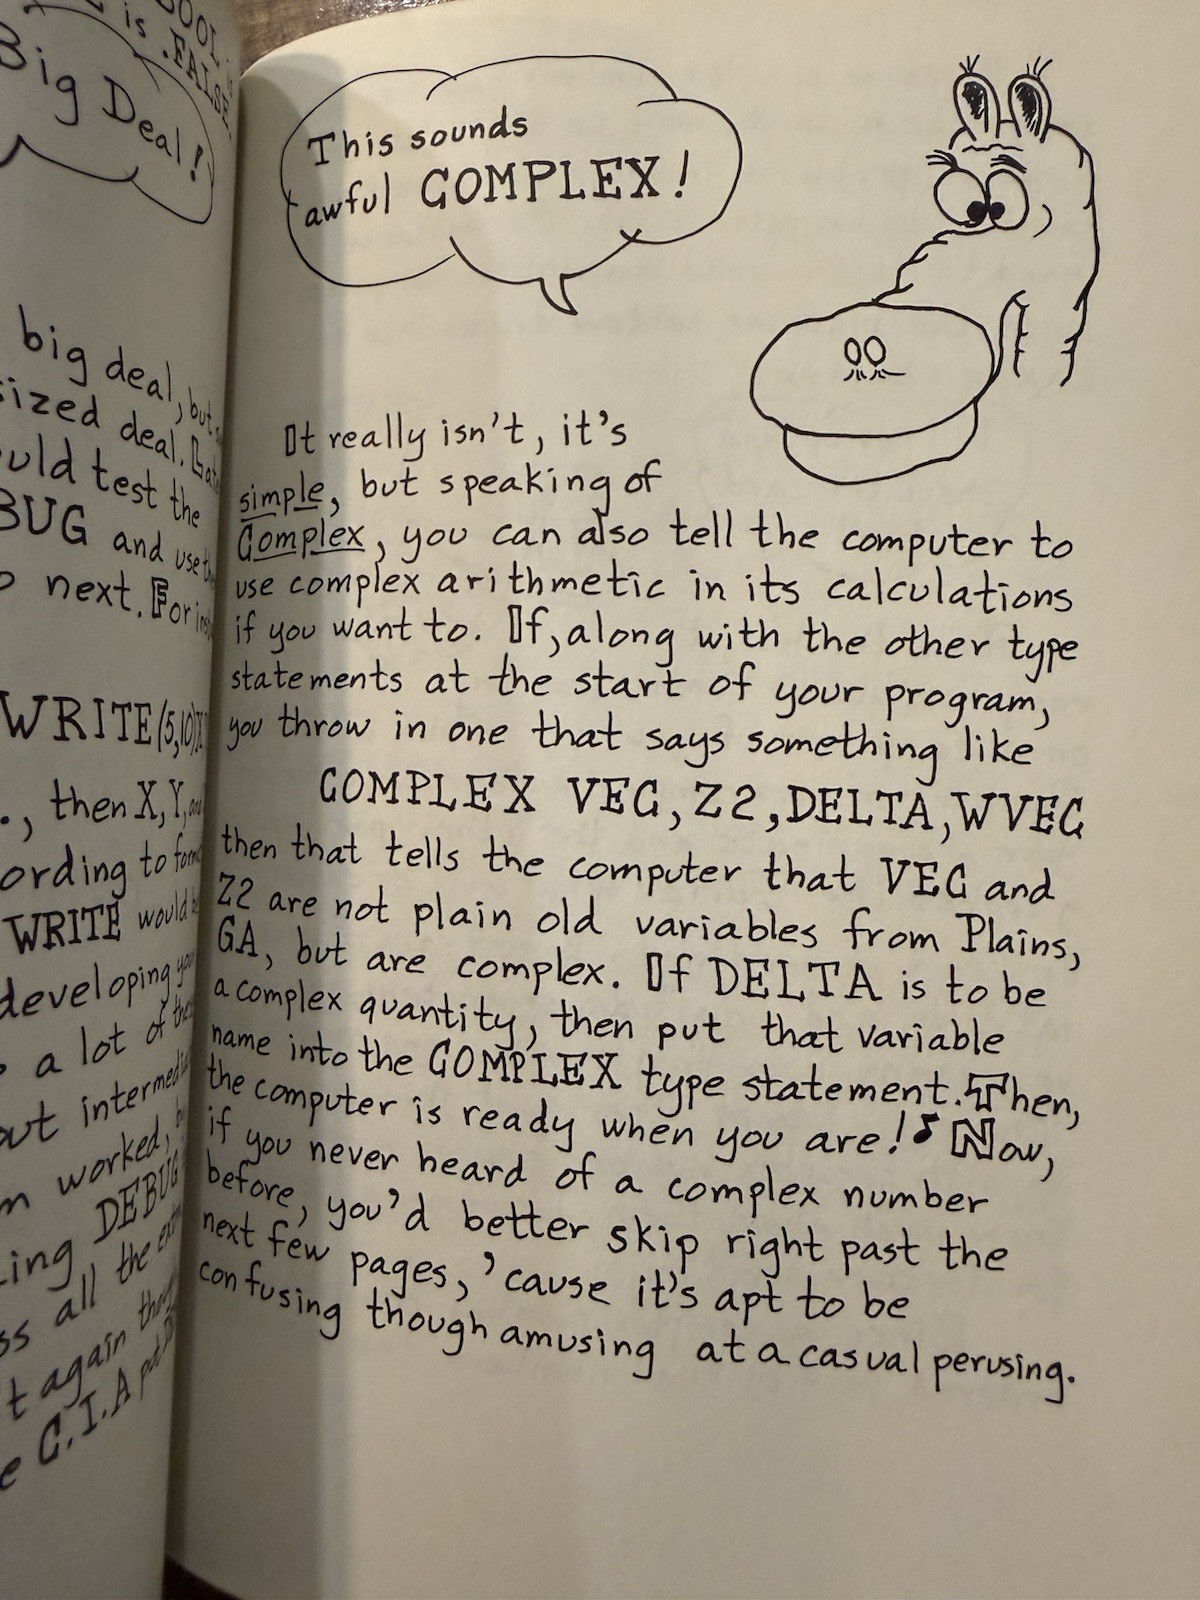 is
.FALSE.
Big Deal!
big deal, but
sized deal.
uld test the
BUG and use
next. For
WRITE(5,10)X
., then X, Y,
ording to
WRITE would
developing
a lot of
out
worked,
ing DEBUG
ss all the
t again
e C.I.A put
This sounds
awful COMPLEX!
It really isn't, it's
simple, but speaking of
Complex, you can also tell the computer to
use complex arithmetic in its calculations
if you want to. If, along with the other type
statements at the start of your program,
you throw in one that says something like
COMPLEX VEC, Z2, DELTA, WVEC
then that tells the computer that VEC and
Z2 are not plain old variables from Plains,
GA, but are complex. If DELTA is to be
a complex quantity, then put that variable
name into the COMPLEX type statement. Then,
the computer is ready when you are!♪ Now,
if you never heard of a complex number
before, you'd better skip right past the
next few pages, 'cause it's apt to be
confusing though amusing at a casual perusing.